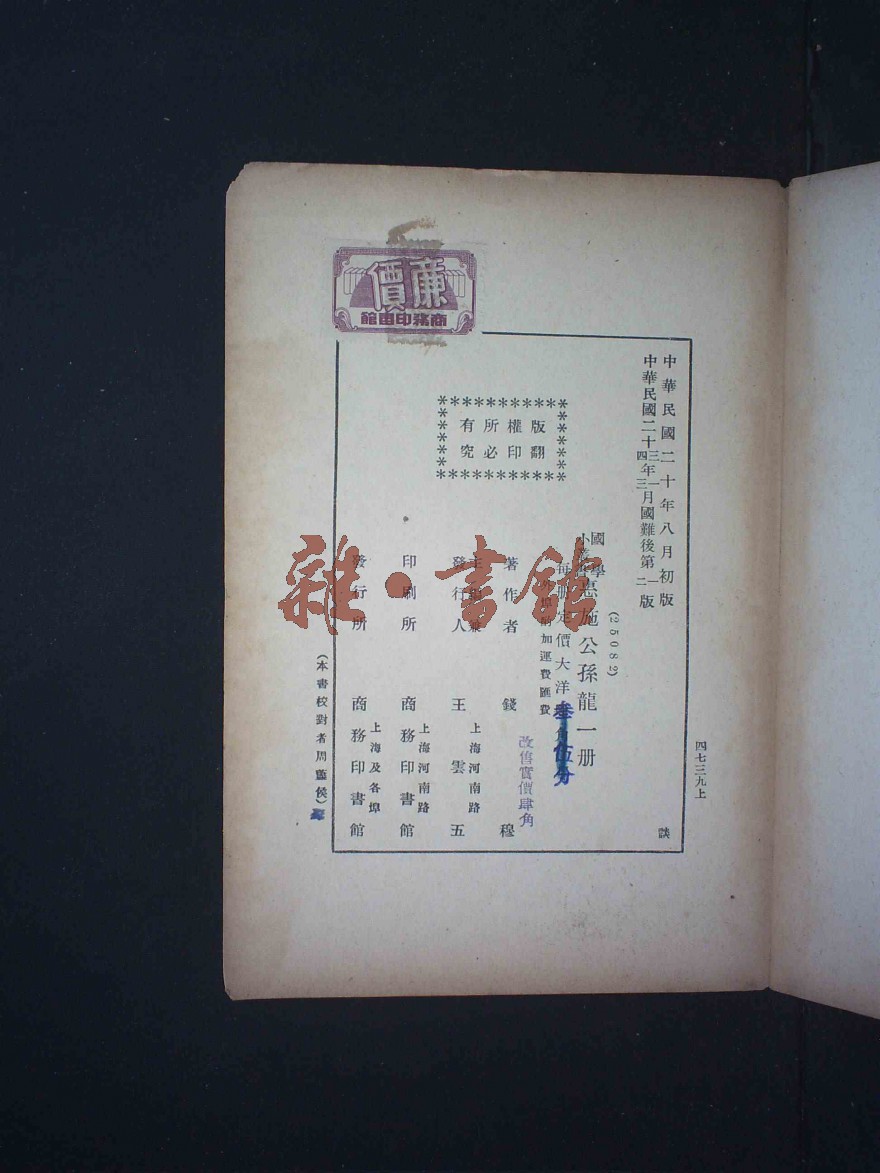 廉價
商務印書館
中華民國二十年八月初版
中華民國二十三年一月國難後第一版
四 三 二
四七三九上
談
(25082)
國學小叢書
惠施公孫龍一册
每册定價大洋
叁角伍分
外埠酌加運費匯費
改售實價肆角
版權所有
翻印必究
著作者 錢穆
主編兼
發行人 王雲五
上海河南路
印刷所 商務印書館
上海河南路
發行所 商務印書館
上海及各埠
(本書校對者周藎侯)
雜·書館